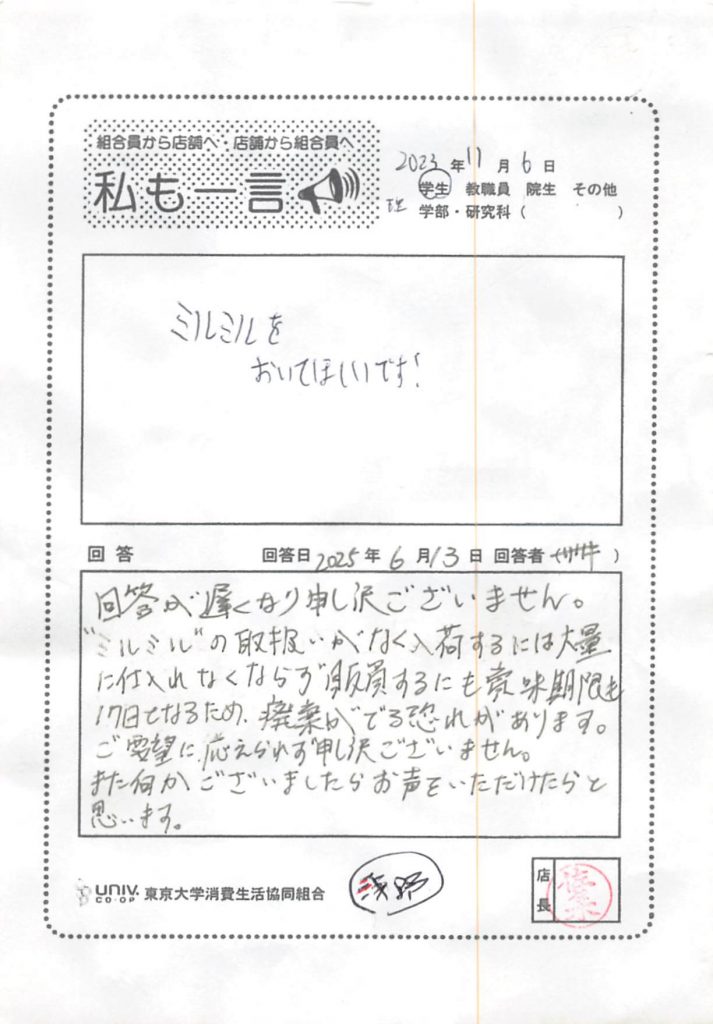 組合員から店舗へ・店舗から組合員へ
私も一言
2023年11月6日
学生 教職員 院生 その他
理 学部・研究科( )
ミルミルを
おいてほしいです!
回答 回答日 2025年6月13日 回答者 )
回答が遅くなり申し沢ございません。
"ミルミル"の取扱いがなく入荷するには大量
に仕入れなくならず販買するにも賞味期限も
17日となるため、廃棄がでる恐れがあります。
ご要望に応えられず申し沢ございません。
また何かございましたらお声をいただけたらと
思います。
UNIV. CO-OP 東京大学消費生活協同組合
浅野
店長